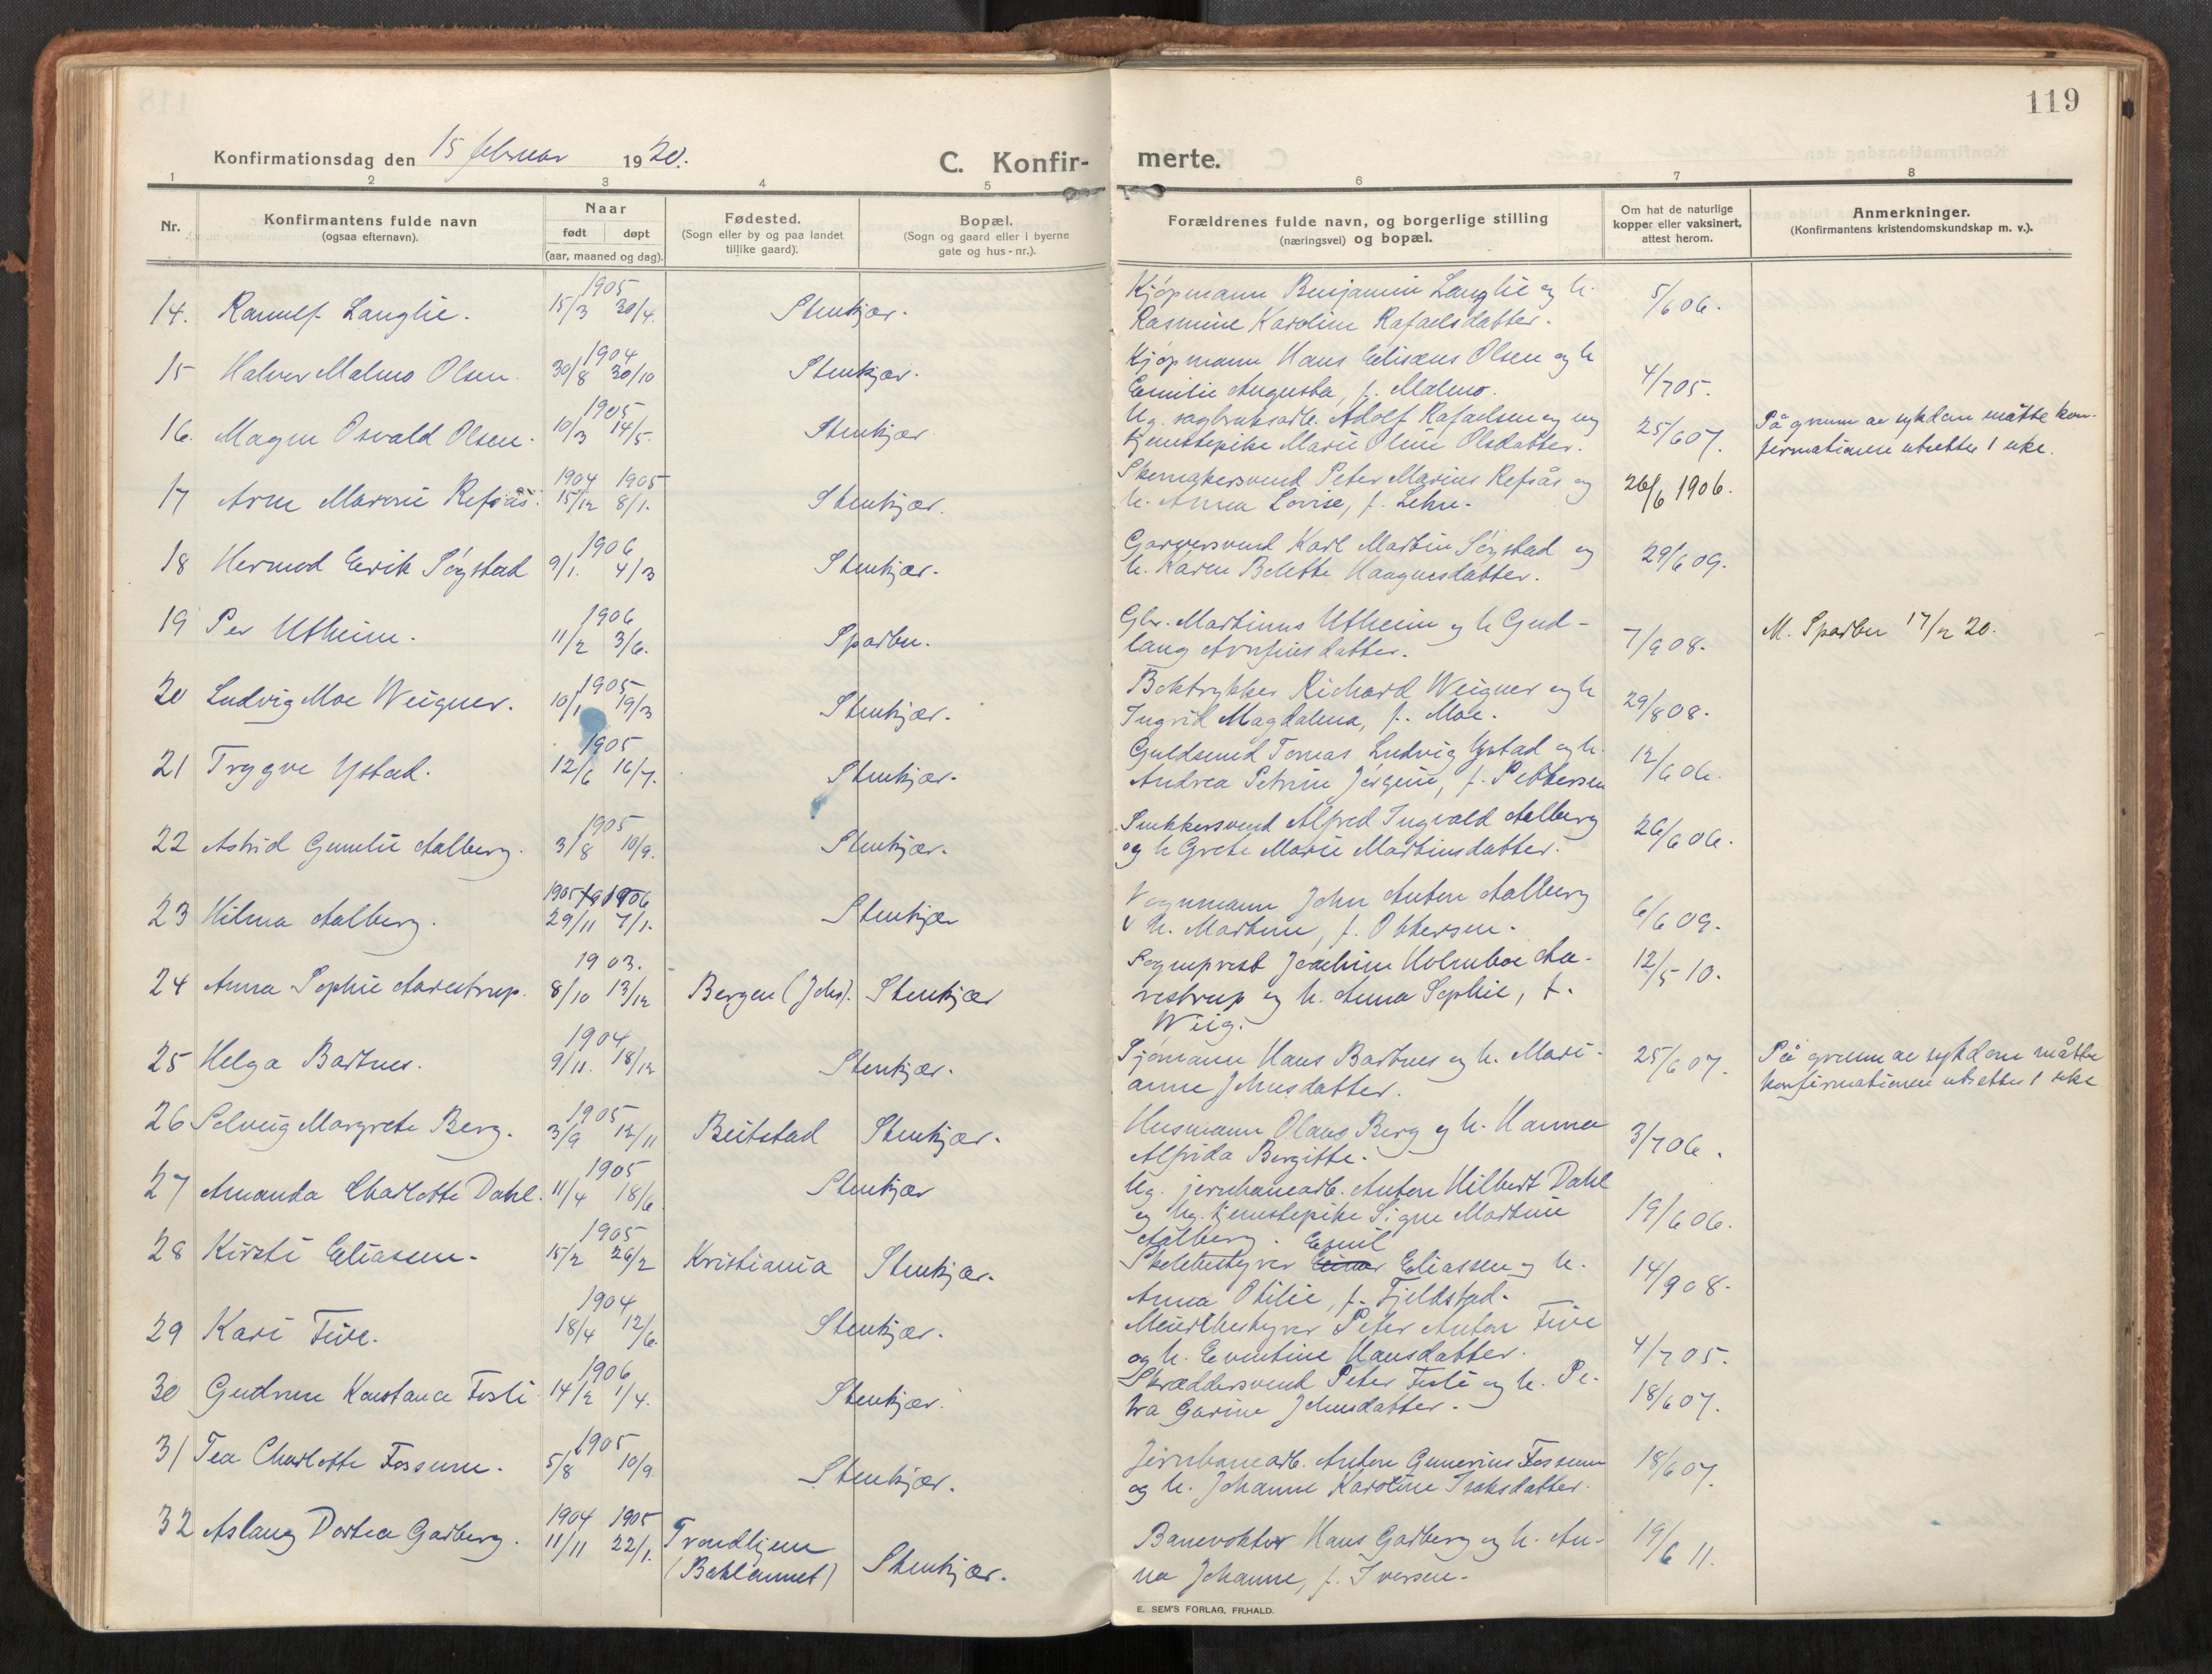 119
Konfirmationsdag den 15 februar 1920.
C. Konfir-
merte.
1 2 3 4 5 6 7 8
Nr.
Konfirmantens fulde navn
(ogsaa efternavn).
Naar
født døpt
(aar, maaned og dag).
Fødested.
(Sogn eller by og paa landet
tillike gaard).
Bopæl.
(Sogn og gaard eller i byerne
gate og hus-nr.).
Forældrenes fulde navn, og borgerlige stilling
(næringsvei) og bopæl.
Om hat de naturlige
kopper eller vaksinert,
attest herom.
Anmerkninger.
(Konfirmantens kristendomskundskap m. v.).
1905
14. Ranulf Langlie. 15/3 30/4. Stenkjær. Kjøpmann Benjamin Langlie og h. 5/6 06.
Rasmine Karoline Rafaelsdatter.
1904
15 Halvor Malmo Olsen. 30/8 30/10 Stenkjær. Kjøpmann Hans Elisæus Olsen og h 4/7 05.
Emilie Augusta, f. Malmo.
1905
16. Magne Osvald Olsen. 10/3 14/5. Stenkjær. Ug. sagbruksarb. Adolf Rafaelsen og ug 25/6 07. På grunn av sykdom måtte kon-
tjenstepike Marie Oline Olsdatter. firmationen utsettes 1 uke.
1904 1905
17 Arne Refsås. 15/12 8/1. Stenkjær. Skomakersvend Peter Marius Refsås og 26/6 1906.
h. Anna Lovise, f. Lehn.
1906
18 Hermod Eerik Søgstad 9/1. 4/3 Stenkjær. Garversvend Karl Martin Søgstad og 29/6 09.
h. Karen Belette Haagnesdatter.
1906
19 Per Utheim. 11/2 3/6. Sparbu. Gbr. Martinus Utheim og h Gud- 7/9 08. M. Sparbu 17/2 20.
laug Arnfinsdatter.
1905
20 Ludvig Moe Weigner. 10/1 19/3 Stenkjær. Boktrykker Richard Weigner og h 29/8 08.
Ingrid Magdalena, f. Moe.
1905
21 Trygve Ystad. 12/6 16/7. Stenkjær. Guldsmed Tomas Ludvig Ystad og h. 12/6 06.
Andrea Petrine Jørgine, f. Pettersen
1905
22 Astrid Gunelie Aalberg. 3/8 10/9. Stenkjær. Snekkersvend Alfred Ingvald Aalberg 26/6 06.
og h Grete Marie Martinsdatter.
1905 1906
23 Hilma Aalberg. 29/11 7/1. Stenkjær Vognmann John Anton Aalberg 6/6 09.
h. Martine, f. Ottersen.
1903.
24 Anna Sophie Aarestrup. 8/10 13/12 Bergen (Johs). Stenkjær Sogneprest Joachim Holmboe Aa- 12/5 10.
restrup og h. Anna Sophie, f.
Wiig.
1904
25 Helga Bartnes. 9/11. 18/12 Stenkjær. Sjømann Hans Bartnes og h. Mari- 25/6 07. På grunn av sykdom måtte
anne Johnsdatter. konfirmationen utsettes 1 uke
1905
26 Solveig Margrete Berg. 3/9 12/11 Beitstad Stenkjær. Husmann Olaus Berg og h. Hanna 3/7 06.
Alfrida Bergitte.
1905
27 Amanda Charlotte Dahl. 11/4 18/6. Stenkjær Ug. jernbanearb. Anton Hilbert Dahl 19/6 06.
og ug. tjenstepike Signe Martine
Aalberg.
1905
28 Kirsti Eliassen. 15/2 26/2 Kristiania Stenkjær. Skolebestyrer Emil Eliassen og h. 14/9 08.
Anna Otilie, f. Fjeldstad.
1904
29 Kari Five. 18/4 12/6. Stenkjær. Meieribestyrer Peter Anton Five 4/7 05.
og h. Eventine Hansdatter.
1906
30 Gudrun Konstance Fosli 14/2 1/4. Stenkjær. Skræddersvend Peter Fosli og h. Pe- 18/6 07.
tra Gurine Johnsdatter.
1905
31 Tea Charlotte Fossum. 5/8 10/9 Stenkjær. Jernbanearb. Anton Gunerius Fossum 18/6 07.
og h. Johanne Karoline Isaksdatter.
1904 1905
32 Aslaug Dortea Garberg. 11/11 22/1. Trondhjem Stenkjær. Banevokter Hans Garberg og h. An- 19/6 11.
(Baklannet) na Johanne, f. Iversen.
E. SEM'S FORLAG, FR.HALD.